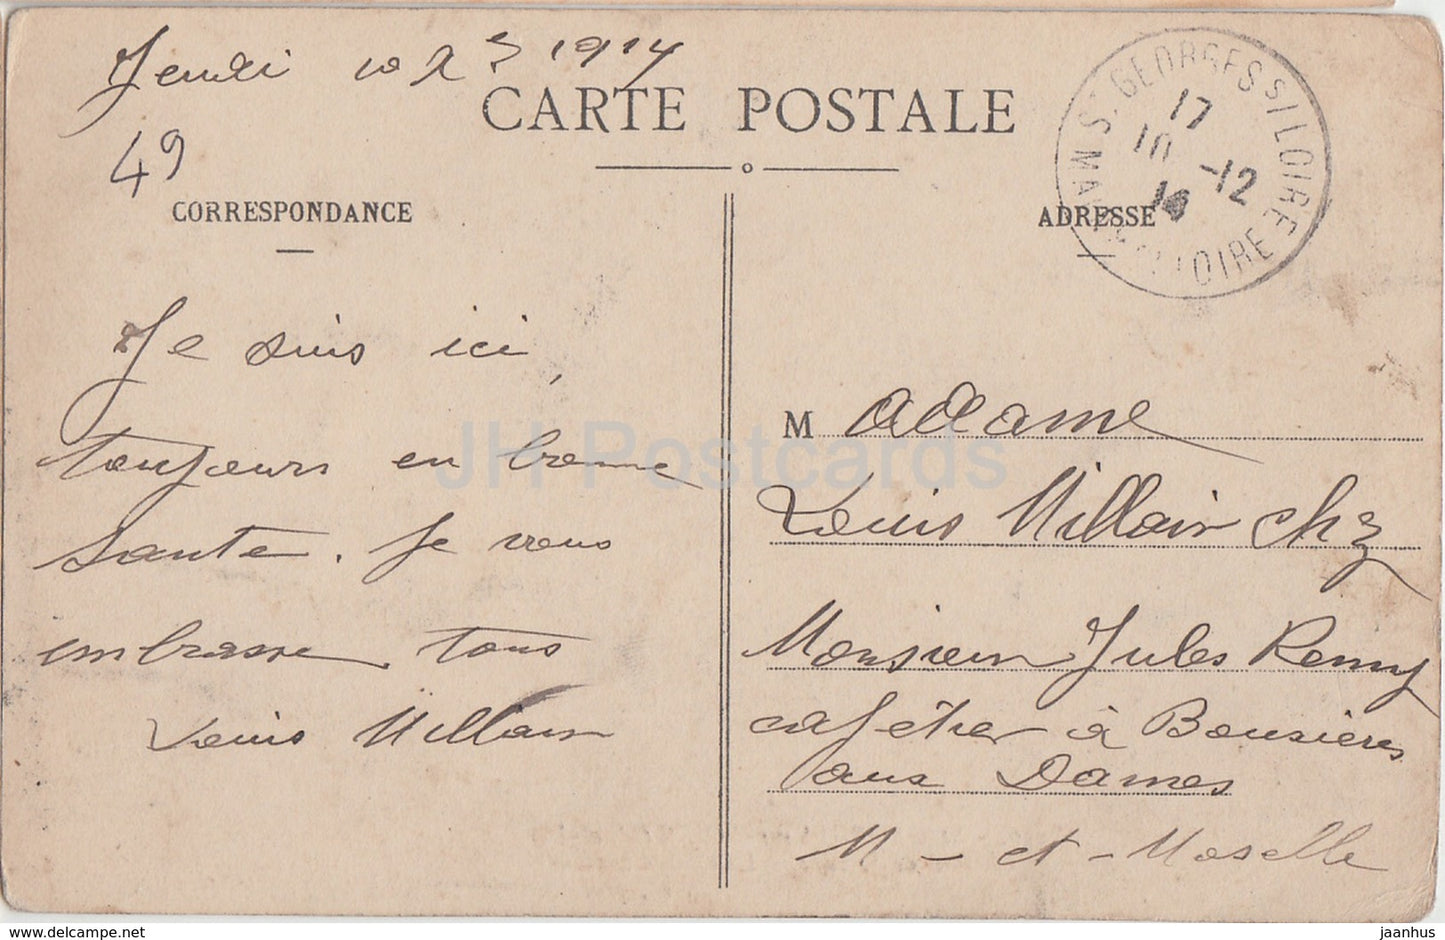 Jeudi 10 X 1914
CARTE POSTALE
49
CORRESPONDANCE
ADRESSE
S. GEORGES S/ LOIRE
17
10 -12
14
LOIRE
Je suis ici,
toujours en bonne
sante. Je vous
embrasse tous
Louis Millain
M adame
Louis Millair chez
Monsieur Jules Remy
cafétier à Bouxières
aux Dames
M - et - Moselle
JH Postcards
jaanhus